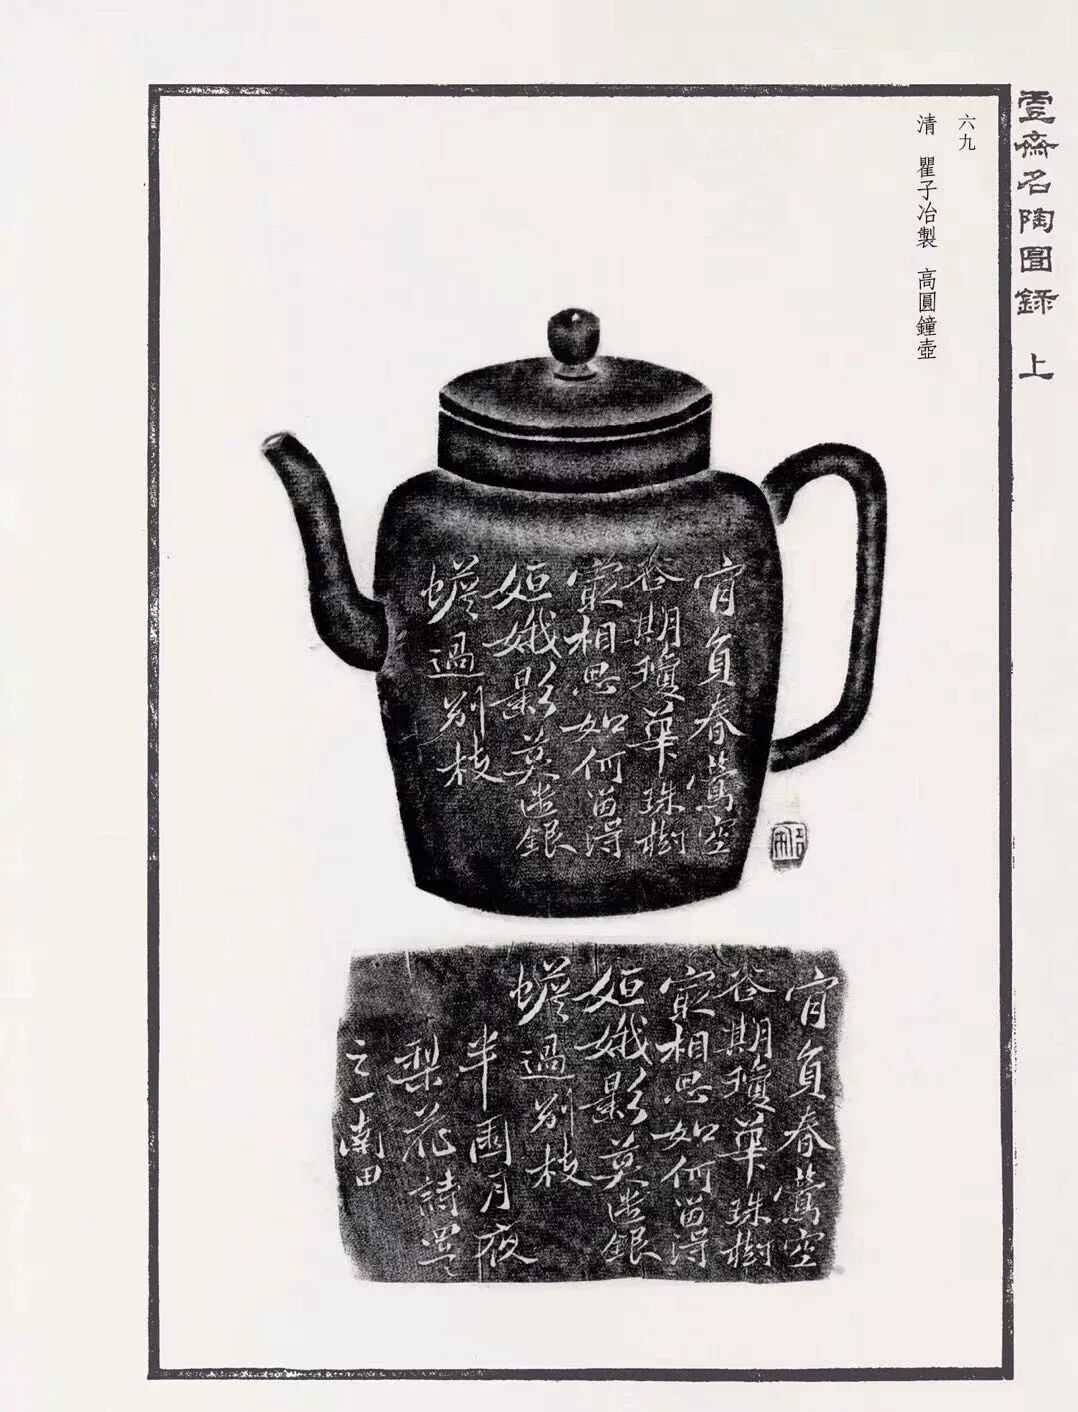 壹齋名陶圖錄 上
六九
清 瞿子冶製 高圓鐘壺
肎負春鶯空
谷期瓊華珠樹
冣相思如何留得
姮娥影莫遣銀
蟾過別枝
子冶
肎負春鶯空
谷期瓊華珠樹
冣相思如何留得
姮娥影莫遣銀
蟾過別枝
半園月夜
梨花詩
之一南田